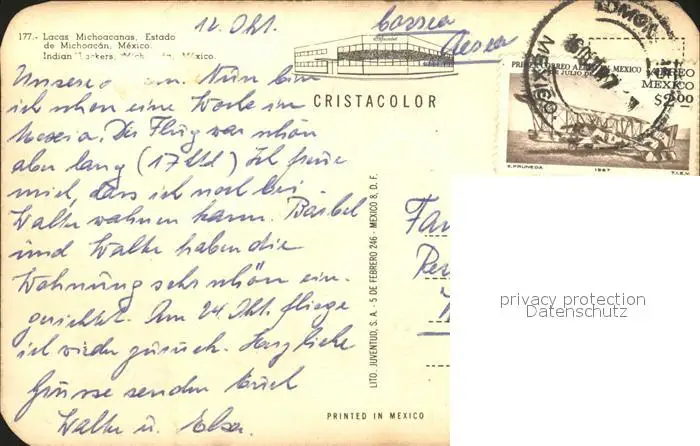 12. Okt.
Correo
Aereo
177.- Lacas Michoacanas, Estado
de Michoacán, México.
Indian Lackers, Mich    n, México.
CRISTACOLOR
PRIMER CORREO AEREO EN MEXICO
DE JULIO DE
AEREO
MEXICO
$2.00
MEXICO
E. PRUNEDA
1967
T.I.E.V.
Nun bin
ich schon eine Woche in
Mexico. Der Flug war schön
aber lang (17 Std) Ich freue
mich, dass ich noch bei
Walter wohnen kann. Bärbel
und Walter haben die
Wohnung sehr schön ein-
gerichtet. Am 24 Okt. fliege
ich wieder zurück. Herzliche
Grüsse senden Euch
Walter u. Elsa.
LITO. JUVENTUD, S. A. - 5 DE FEBRERO 246 - MEXICO 8, D. F.
Fam
PRINTED IN MEXICO
privacy protection
Datenschutz